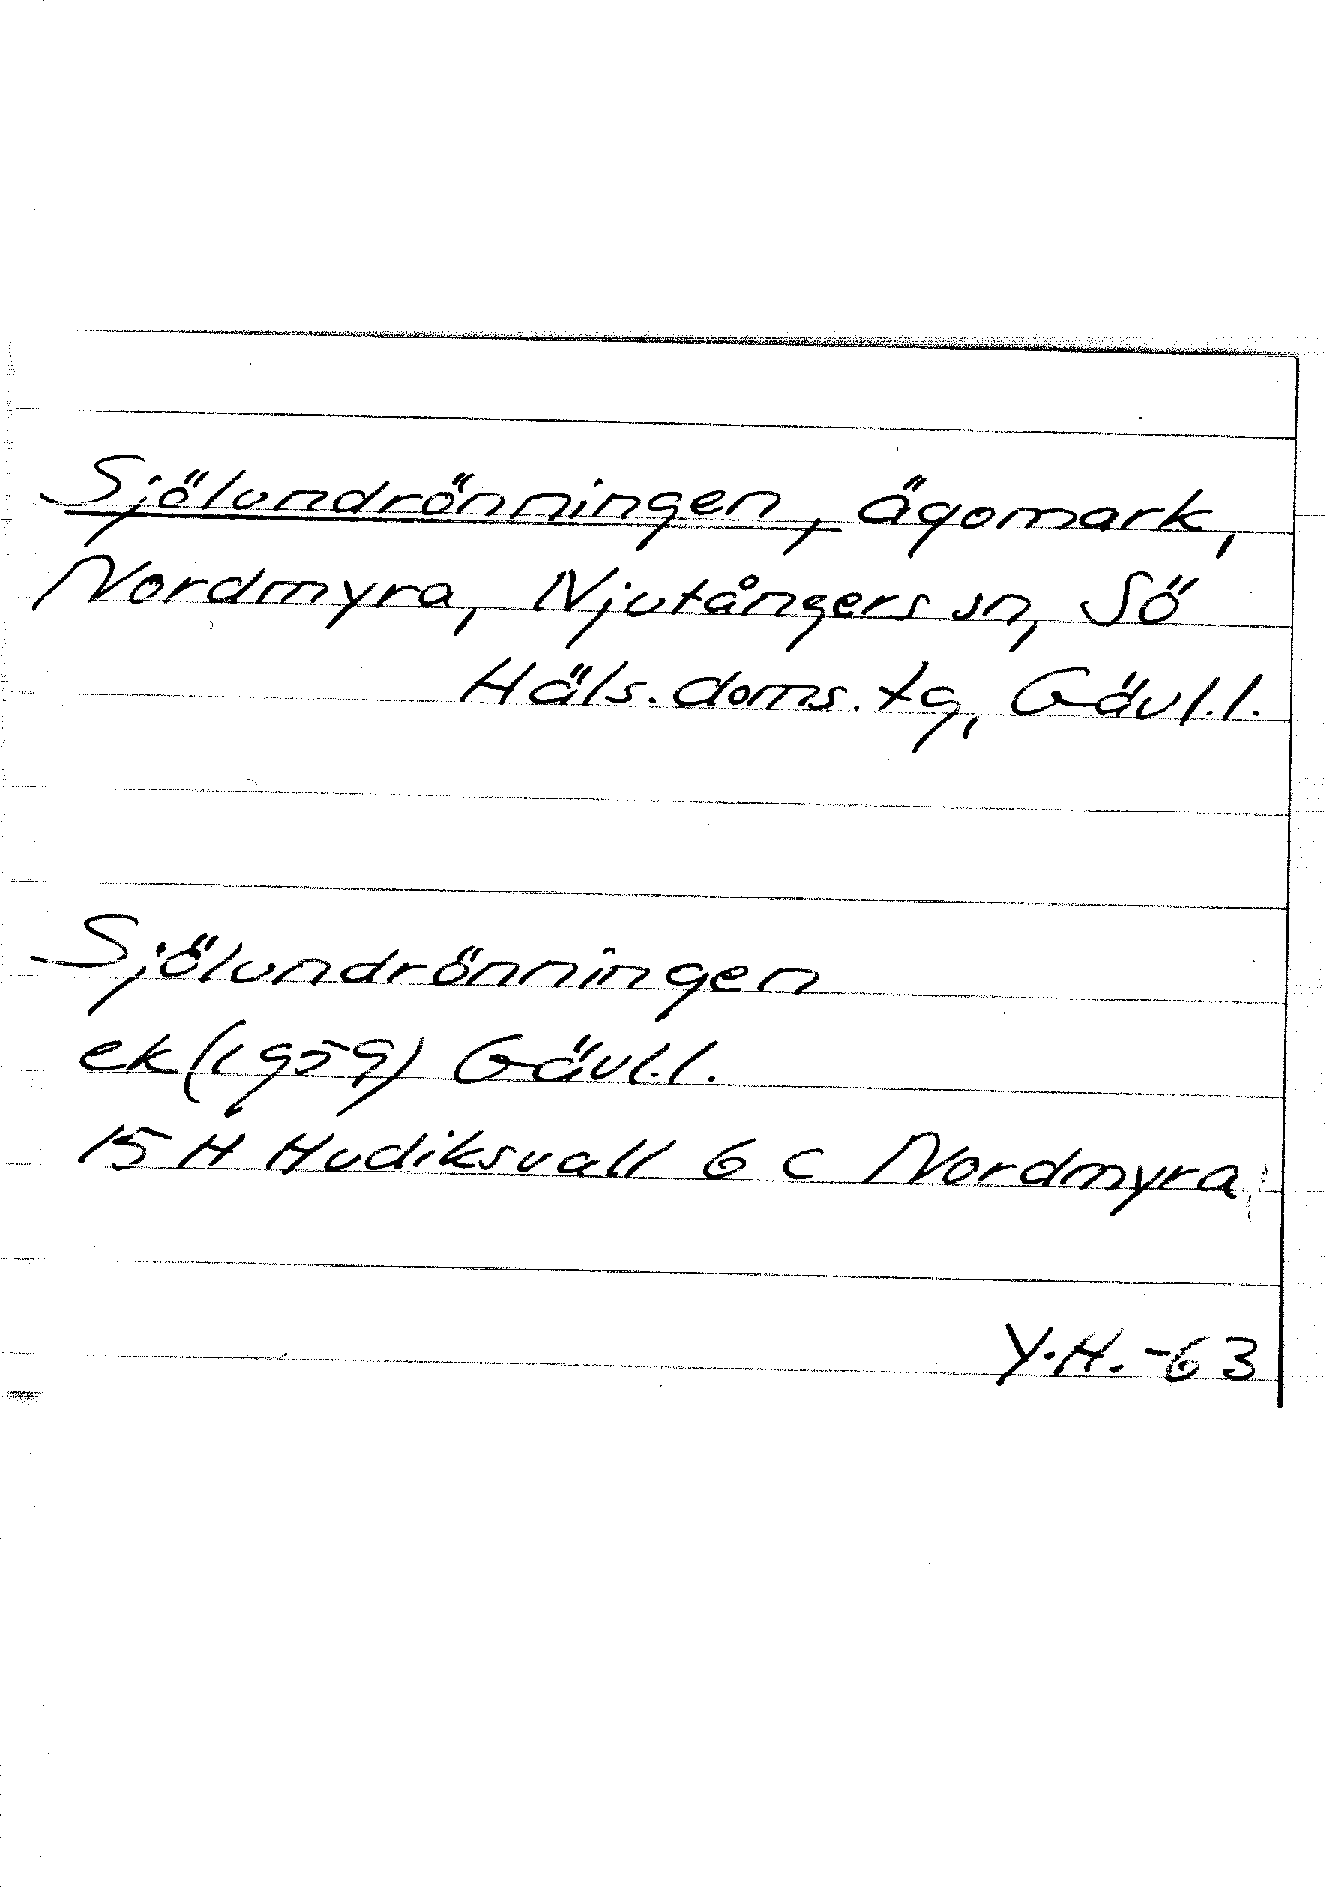 Sjölundrönningen, ägomark,
Nordmyra, Njutångers sn, Sö
Häls. doms. tg, Gävl.l.
Sjölundrönningen
ek (1959) Gävl.l.
15 H Hudiksvall 6 c Nordmyra
Y.H. -63